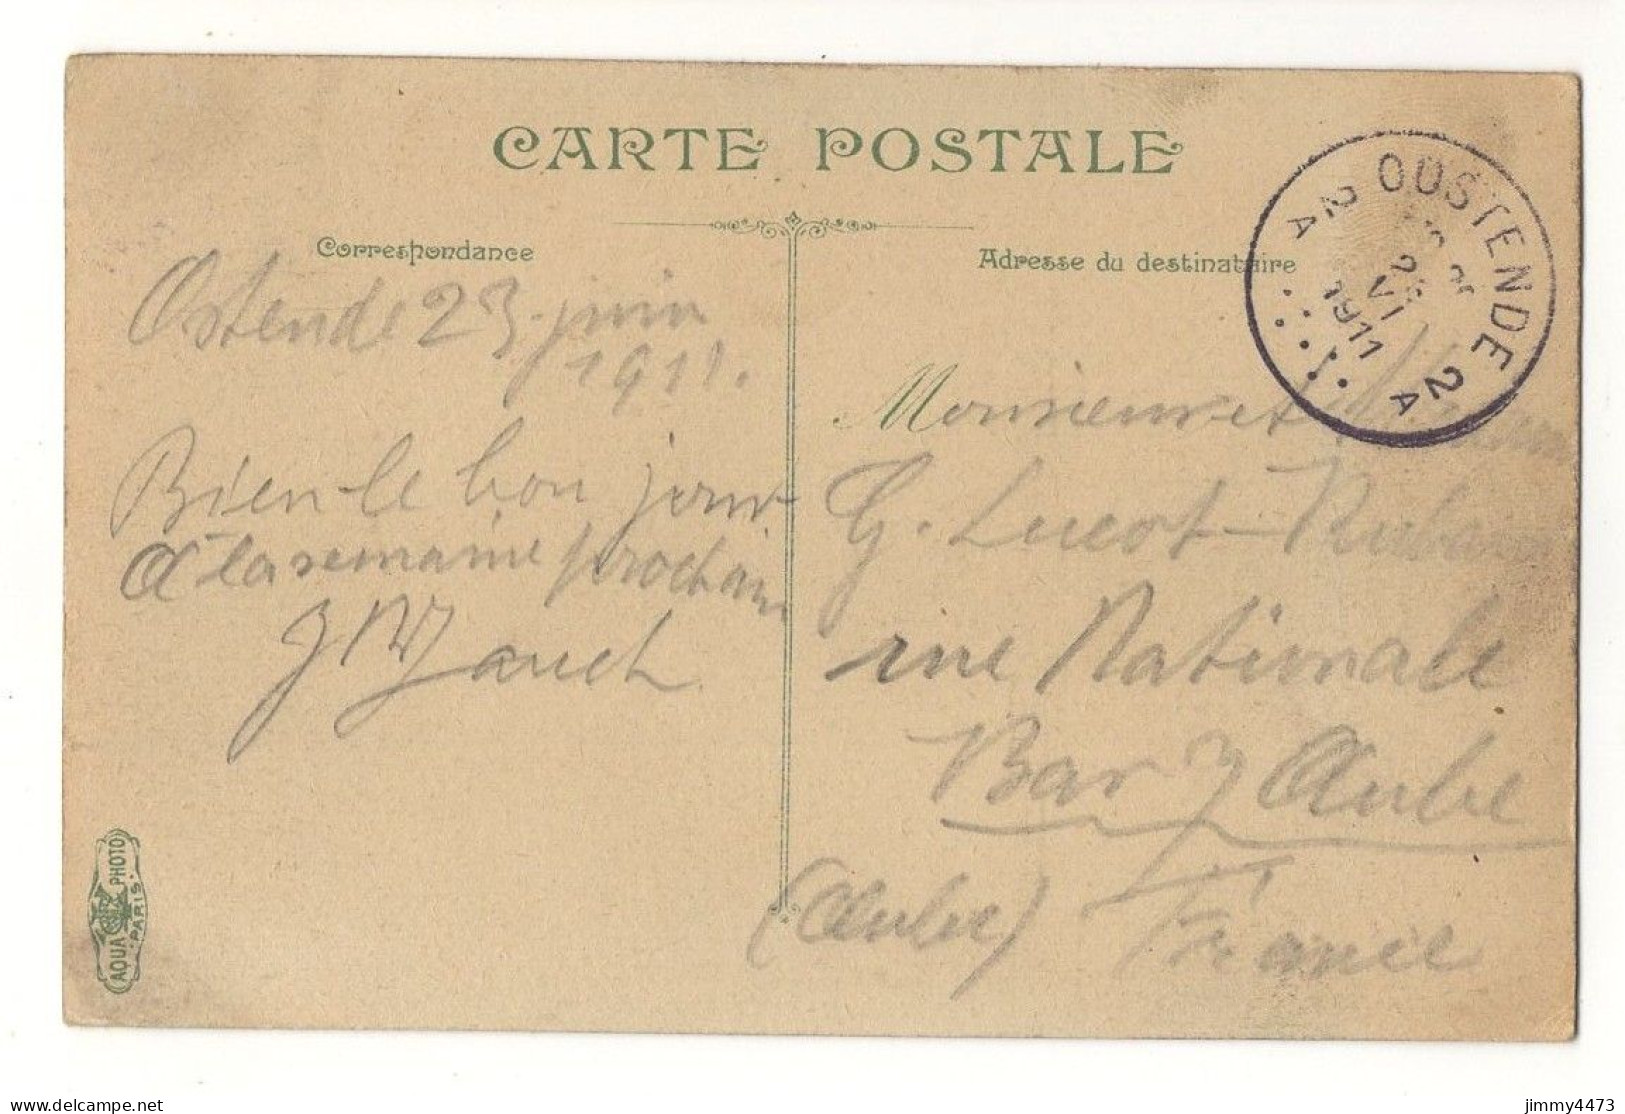 CARTE POSTALE
Correspondance
Adresse du destinataire
OOSTENDE 2A
2A
VI
1911
Ostende 23 juin
1911.
Bien le bon jour
A la semaine prochain
Monsieur et
G. Lucot-
rue Nationale.
Bar s/ Aube
(Aube) France
AQUA PHOTO
PARIS
delcampe.net
jimmy4473